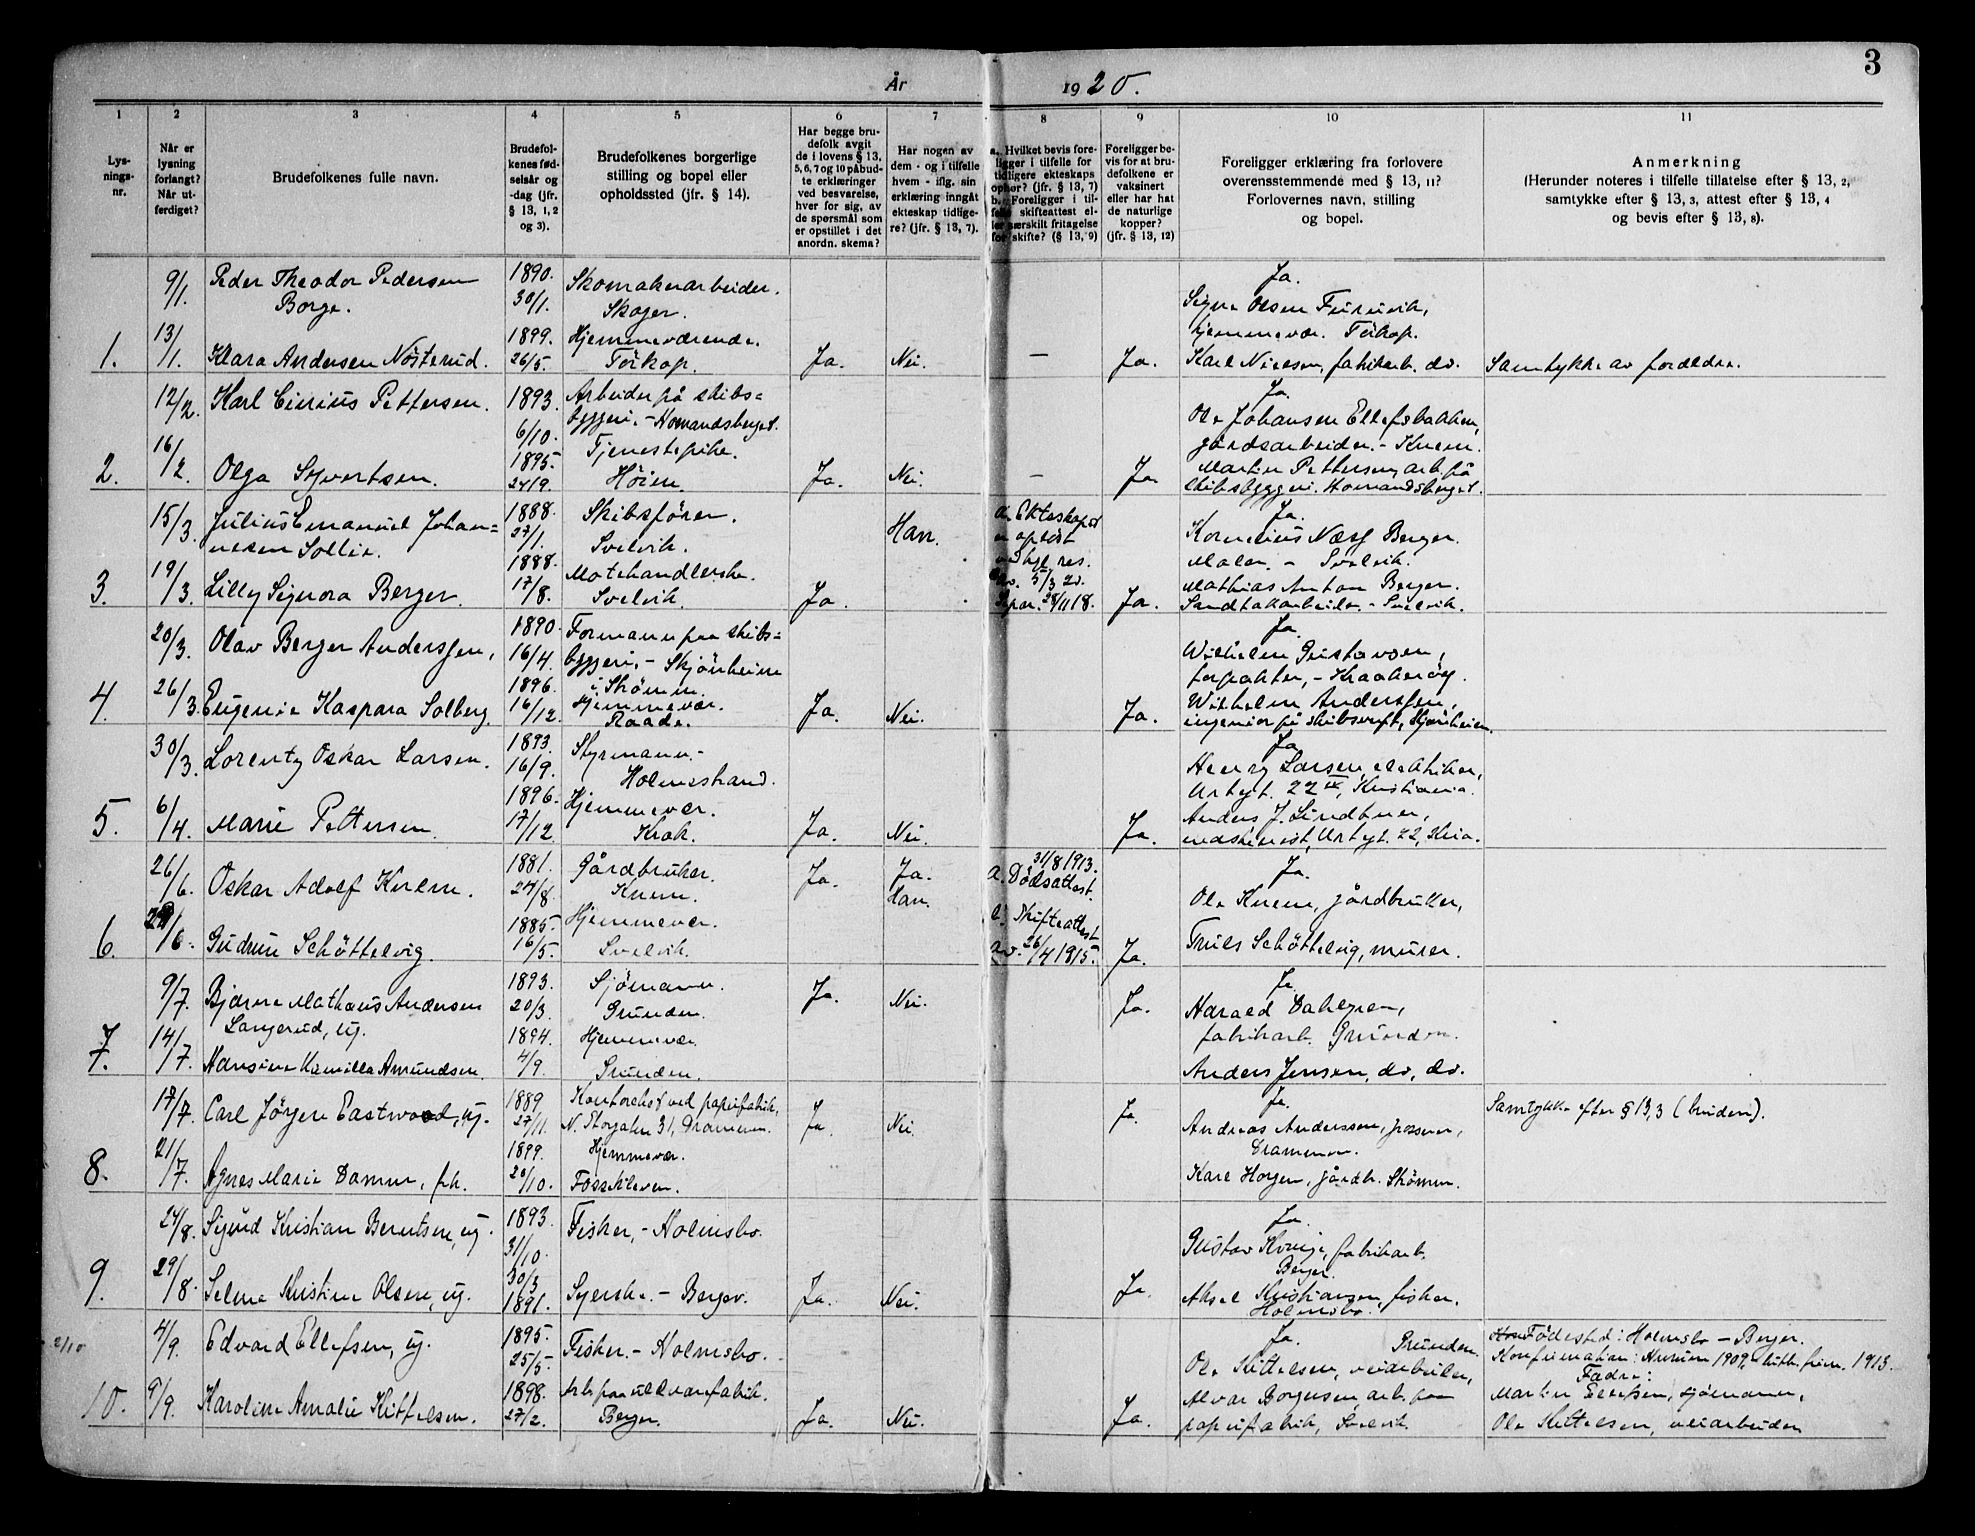 3
År 1920.
1 2 3 4 5 6 7 8 9 10 11
Lys-
nings-
nr.
Når er
lysning
forlangt?
Når ut-
ferdiget?
Brudefolkenes fulle navn.
Brudefol-
kenes fød-
selsår og
-dag (jfr.
§ 13, 1, 2
og 3).
Brudefolkenes borgerlige
stilling og bopel eller
opholdssted (jfr. § 14).
Har begge bru-
defolk avgit
de i lovens § 13,
5, 6, 7 og 10 påbud-
te erklæringer
ved besvarelse,
hver for sig, av
de spørsmål som
er opstillet i det
anordn. skema?
Har nogen av
dem - og i tilfelle
hvem - iflg. sin
erklæring inngåt
ekteskap tidlige-
re? (jfr. § 13, 7).
a. Hvilket bevis fore-
ligger i tilfelle for
tidligere ekteskaps
ophør? (jfr. § 13, 7)
b. Foreligger i til-
felle skifteattest el-
ler særskilt fritagelse
for skifte? (§ 13, 9)
Foreligger be-
vis for at bru-
defolkene er
vaksinert
eller har hat
de naturlige
kopper?
(jfr. § 13, 12)
Foreligger erklæring fra forlovere
overensstemmende med § 13, 11?
Forlovernes navn, stilling
og bopel.
Anmerkning
(Herunder noteres i tilfelle tillatelse efter § 13, 2,
samtykke efter § 13, 3, attest efter § 13, 4
og bevis efter § 13, 8).
9/1. Peder Theodor Pedersen 1890. Skomakerarbeider. Ja.
Borge. 30/1. Skoger. Signe Olsen Furuvik,
13/1. 1899. Hjemmeværende. hjemmevær. Törkop.
1. Klara Andersen Nösterud. 26/5. Törkop. Ja. Nei. — Ja. Karl Nielsen, fabrikarb. do. Samtykke av foreldre.
12/2. Karl Cirius Pettersen. 1893. Arbeider på skibs= Ja.
6/10. byggeri. - Homandsberget. Ole Johansen Ellefsbakken,
16/2. 1895. Tjenestepike. gårdsarbeider. - Knem.
2. Olga Syvertsen. 24/9. Höien. Ja. Nei. — Ja. Martin Pettersen, arb. på
skibsbyggeri. Homandsberget.
15/3. Julius Emanuel Johan- 1888. Skibsförer. Han. a. Ekteskapet Ja.
nesen Sollie. 27/1. Svelvik. er oplöst Kornelius Næss Berger.
19/3. 1888. Motehandlerske. ved kgl. res. Maler. - Svelvik.
3. Lilly Signora Berger. 17/8. Svelvik. Ja. av. 5/3 20. Ja. Mathias Anton Berger.
Separ. 28/11 18. Sandtakarbeider. - Svelvik.
20/3. Olav Berger Anderssen, 1890. Formann paa skibs= Ja.
16/4. byggeri, - Skjönheim Wilhelm Gustavsen,
26/3. 1896. i Strömm. forpakter, - Kraakeröy.
4. Eugenie Kaspara Solberg. 16/12. Hjemmevær. Ja. Nei. Ja. Wilhelm Anderssen,
Raade. ingeniör på skibsverft, Skjönheim.
30/3. Lorentz Oskar Larsen. 1893. Styrmann. - Ja.
16/9. Holmestrand. Henry Larsen, elektriker,
6/4. 1896. Hjemmevær. Urtegt. 22 IV, Kristiania.
5. Marie Pettersen. 17/12 Krok. Ja. Nei. Ja. Anders J. Lindtner,
maskinist, Urtegt. 22, Kria.
26/6. Oskar Adolf Knem. 1881. Gårdbruker. Ja. Ja. 31/8 1913. Ja.
24/8. Knem. Han. a. Dödsattest. Ole Knem, gårdbruker,
6. 29/6. 1885. Hjemmevær. b. Skifteattest
Gudrun Schöttelvig. 16/5. Svelvik. av. 26/4 1915. Ja. Truls Schöttelvig, murer.
9/7. Bjarne Mathæus Andersen 1893. Sjömann. Ja. Nei. Ja. Ja.
Langerud, ug. 20/3. Grunden. Harald Dahlgren,
7. 14/7. 1894. Hjemmevær. fabrikarb. Grunden.
Hansine Kamilla Amundsen. 4/9. Grunden. Anders Jensen, do, do.
17/7. Carl Jörgen Eastwood, ug. 1889 Kontorchef ved papirfabrik, Ja. Nei. Ja. Ja. Samtykke efter § 13, 3 (bruden).
27/11. N. Storgaten 31, Drammen. Andreas Anderssen,
8. 21/7. 1899. Hjemmevær. Drammen.
Agnes Marie Damm, frk. 20/10. Fossekleven. Karl Horgen, gårdbr. Strömm.
24/8. Sigurd Kristian Berntsen, ug. 1893. Fisker, - Holmsbo. Ja.
31/10. Gustav Konge, fabrikarb.
29/8. 30/3 Berger.
9. Selma Kristine Olsen, ug. 1891. Syerske. - Berger. Ja. Nei. Ja. Aksel Kristiansen, fisker.
Holmsbo.
2/10 4/9. Edvard Ellefsen, ug. 1895. Fisker. - Holmsbo. Ja. Grunden. Födested: Holmsbo - Berger.
25/5. Ole Kittelsen, veiarbeider, Konfirmation: Hurum 1909, luth. frim. 1913.
Fadre:
10. 9/9. Karoline Amalie Kittelsen. 1898. Arb. paa uldvarefabrik. Alvar Borgersen, arb. paa Martin Ellefsen, sjömann,
27/2. Berger. Ja. Nei. Ja. papirfabrik, Svelvik. Ole Kittelsen, veiarbeider